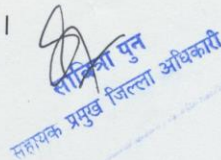 ।
सावित्रा पुन
सहायक प्रमुख जिल्ला अधिकारी